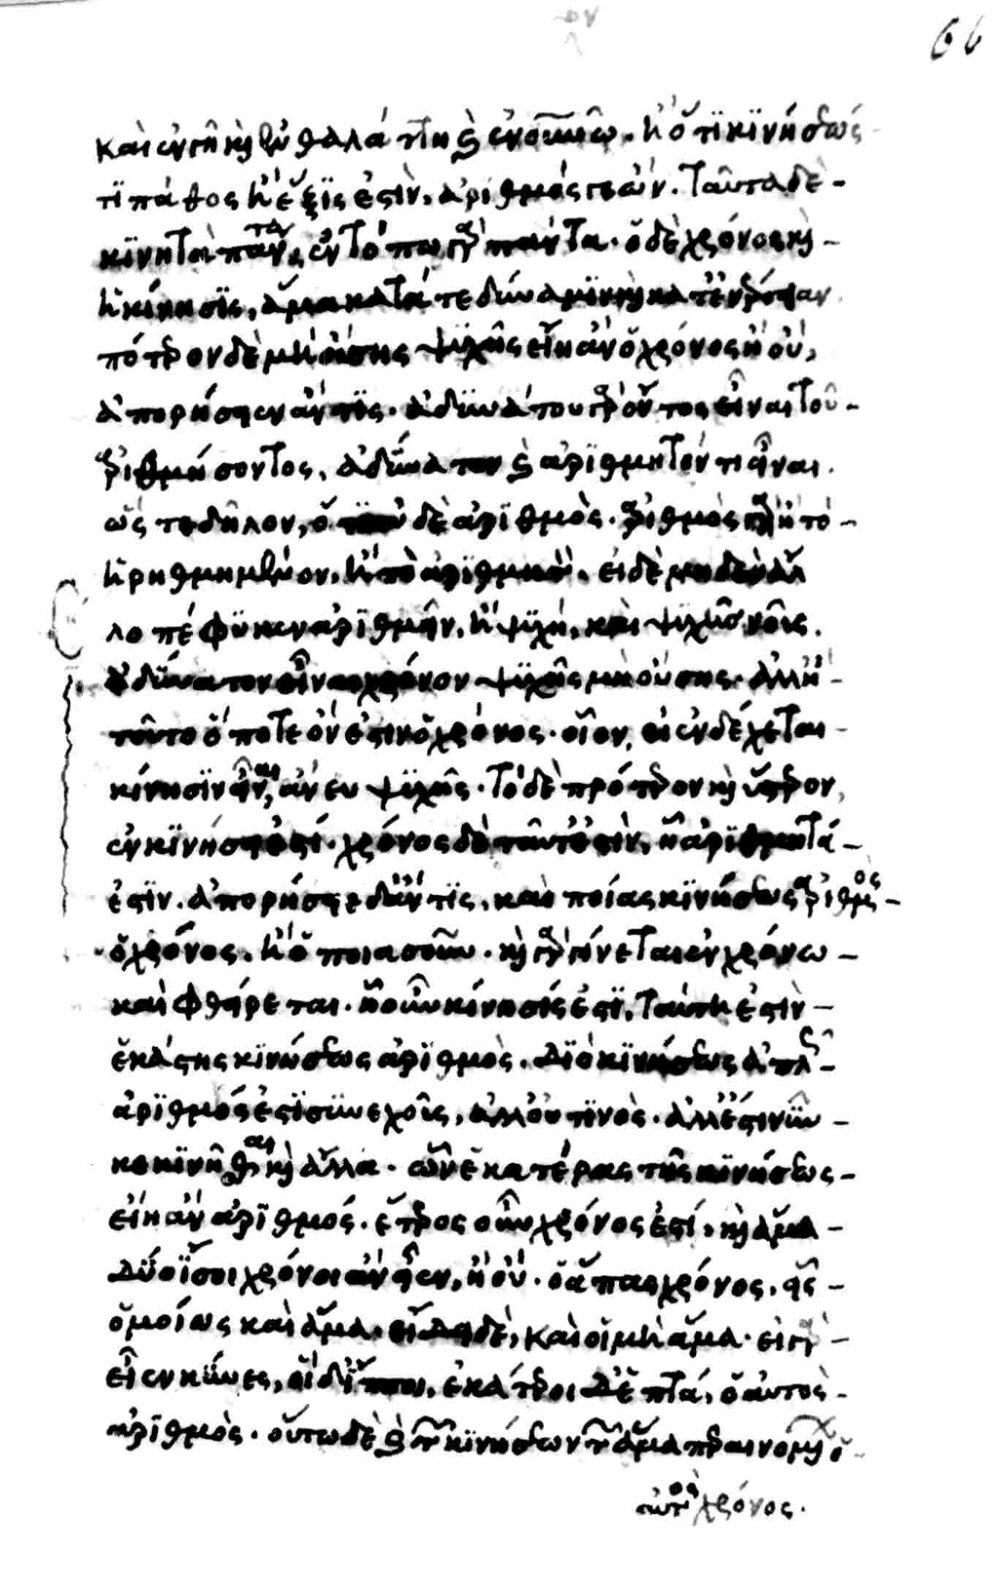 66
καὶ ἐν γῆ καὶ ἐν θαλάττη καὶ ἐν οὐρανῶ. ἢ ὅτι κινήσεώς
τι πάθος ἢ ἕξις ἐστὶν, ἀριθμός γε ὤν. ταῦτα δὲ
κινητὰ πάντα, ἐν τόπω γὰρ πάντα. ὁ δὲ χρόνος καὶ
ἡ κίνησις, ἅμα κατά τε δύναμιν καὶ κατ' ἐνέργειαν
πότερον δὲ μὴ οὔσης ψυχῆς εἴη ἂν ὁ χρόνος ἢ οὔ,
ἀπορήσειεν ἄν τις. ἀδυνάτου γὰρ ὄντος εἶναι τοῦ
ἀριθμήσοντος, ἀδύνατον καὶ ἀριθμητόν τι εἶναι.
ὥστε δῆλον, ὅτι οὐδὲ ἀριθμὸς. ἀριθμὸς γὰρ ἢ τὸ
ἠριθμημένον, ἢ τὸ ἀριθμητόν. εἰ δὲ μηδὲν ἄλ
λο πέφυκεν ἀριθμεῖν, ἢ ψυχή, καὶ ψυχῆς νοῦς,
ἀδύνατον εἶναι χρόνον ψυχῆς μὴ οὔσης. ἀλλ' ἢ
τοῦτο ὅ ποτε ὄν ἐστιν ὁ χρόνος. οἷον, εἰ ἐνδέχεται
κίνησιν εἶναι, ἄνευ ψυχῆς. τὸ δὲ πρότερον καὶ ὕστερον,
ἐν κινήσει ἐστί. χρόνος δὲ ταῦτ' ἐστὶν, ἧ ἀριθμητά
ἐστιν. ἀπορήσειε δ' ἄν τις, καὶ ποίας κινήσεως ἀριθμὸς
ὁ χρόνος. ἢ ὁποιασοῦν. καὶ γὰρ γίνεται ἐν χρόνω
καὶ φθείρεται. ἧ οὖν κίνησίς ἐστι, ταύτη ἐστὶν
ἑκάστης κινήσεως ἀριθμὸς. διὸ κινήσεως ἁπλῶς
ἀριθμός ἐστι συνεχοῦς, ἀλλ' οὐ τινὸς. ἀλλ' ἔστι νῦν
κεκινῆσθαι καὶ ἄλλα. ὧν ἑκατέρας τῆς κινήσεως
εἴη ἂν ἀριθμός. ἕτερος οὖν χρόνος ἐστί, καὶ ἅμα
δύο ἴσοι χρόνοι ἂν εἶεν, ἢ οὔ. ὁ ἅπας χρόνος, εἷς
ὁμοίως καὶ ἅμα. εἴδει δὲ, καὶ οἱ μὴ ἅμα. εἰ γὰρ
εἶεν κύνες, οἱ δ' ἵπποι, ἑκάτεροι δ' ἑπτά, ὁ αὐτὸς
ἀριθμὸς. οὕτω δὲ καὶ τῶν κινήσεων τῶν ἅμα περαινομένων ὁ
αὐτὸς χρόνος.